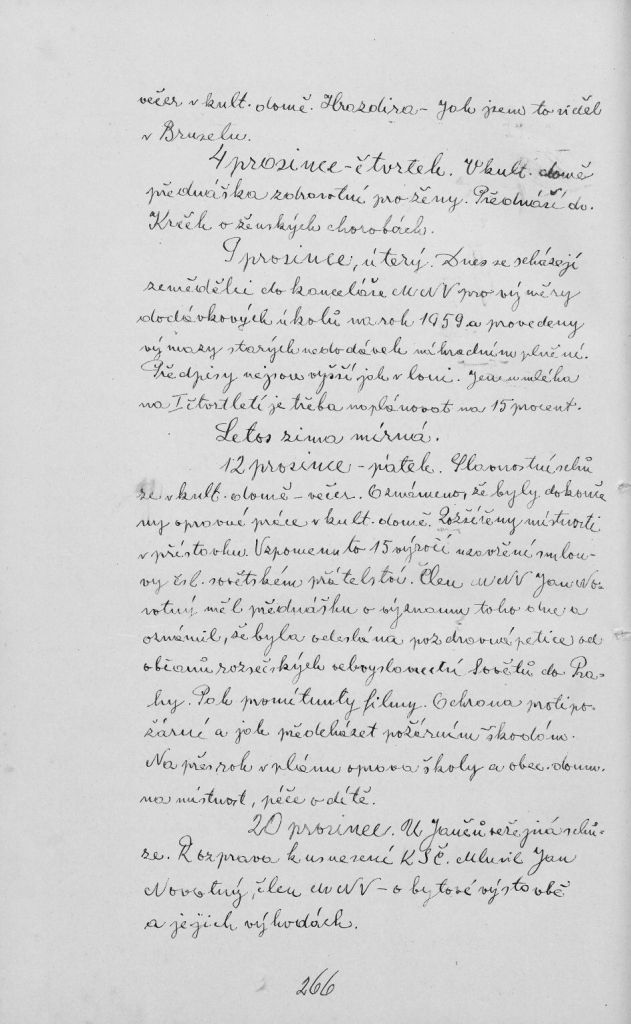 večer v kult. domě. Hrazdira - Jak jsem to viděl
v Bruselu.
4 prosince - čtvrtek. V kult. domě
přednáška zdravotní pro ženy. Přednáší dr.
Krček o ženských chorobách.
9 prosince, úterý. Dnes se scházejí
zemědělci do kanceláře MNV pro výměry
dodávkových úkolů na rok 1959 a provedeny
výmazy starých nedodávek náhradním plněním.
Předpisy nejsou vyšší jak v loni. Jen u mléka
na I čtvrtletí je třeba naplánovat na 15 procent.
Letos zima mírná.
12 prosince - pátek. Slavnostní schů
ze v kult. domě - večer. Oznámeno, že byly dokonče
ny opravné práce v kult. domě. Rozšířeny místnosti
v přístavku. Vzpomenuto 15 výročí uzavření smlou-
vy čsl. sovětském přátelství. Člen MNV Jan No-
votný měl přednášku o významu toho dne a
oznámil, že byla odeslána pozdravná petice od
občanů rozsečských velvyslanectví Sovětů do Pra-
hy. Pak promítnuty filmy. Ochrana protipo-
žární a jak předcházet požárním škodám.
Na přes rok v plánu oprava školy a obec. domu.
na místnost, péče o dítě.
20 prosince. U Jančů veřejná schů-
ze. Rozprava k usnesení KSČ. Mluvil Jan
Novotný, člen MNV - o bytové výstavbě
a jejich výhodách.
266